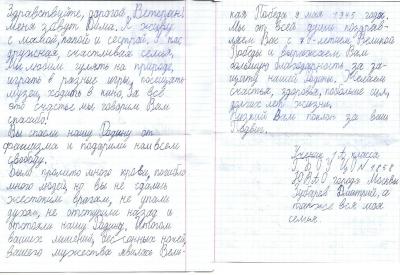 Здравствуйте, дорогой Ветеран!
Меня зовут Дима. Я живу
с мамой, папой и сестрой. У нас
дружная, счастливая семья.
Мы любим гулять на природе,
играть в разные игры, посещать
музеи, ходить в кино. За всё
это счастье мы говорим Вам
спасибо!
Вы спасли нашу Родину от
фашизма и подарили нам всем
свободу.
Было пролито много крови, погибло
много людей, но вы не сдались
жестоким врагам, не упали
духом, не отступили назад и
отстояли нашу Родину. Итогом
ваших лишений, бессонных ночей,
вашего мужества явилась Вели-
кая Победа 9 мая 1945 года.
Мы от всей души поздрав-
ляем Вас с 70-летием Великой
Победы и выражаем Вам
большую благодарность за за-
щиту нашей Родины. Желаем
счастья, здоровья, побольше сил,
долгих лет жизни.
Низкий Вам поклон за ваш
Подвиг.
Ученик класса
ГБОУ ЦО N 1858
ЮВАО города Москвы
Дмитрий, а
также вся моя
семья.